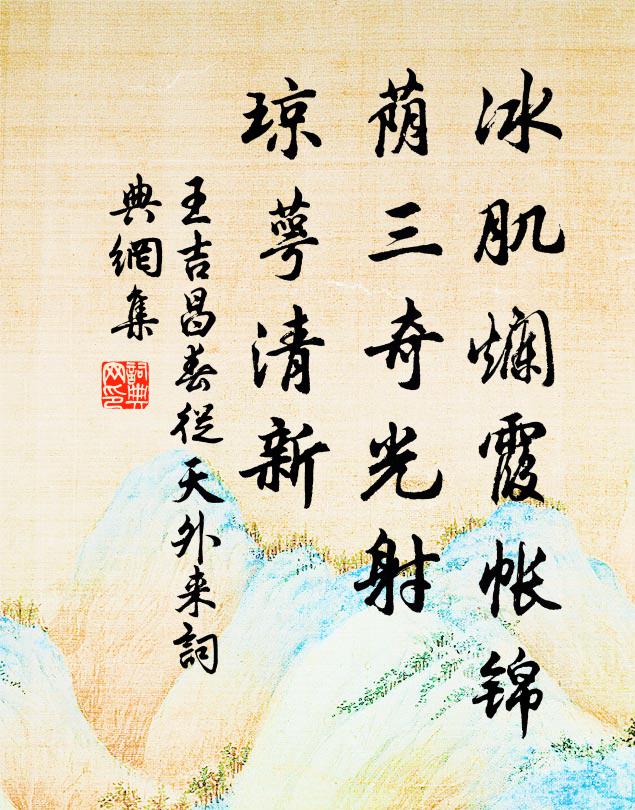 冰肌爛霞帐锦
荫三奇光射
琼萼清新
王吉昌春從天外来詞
典網集
詞典网印